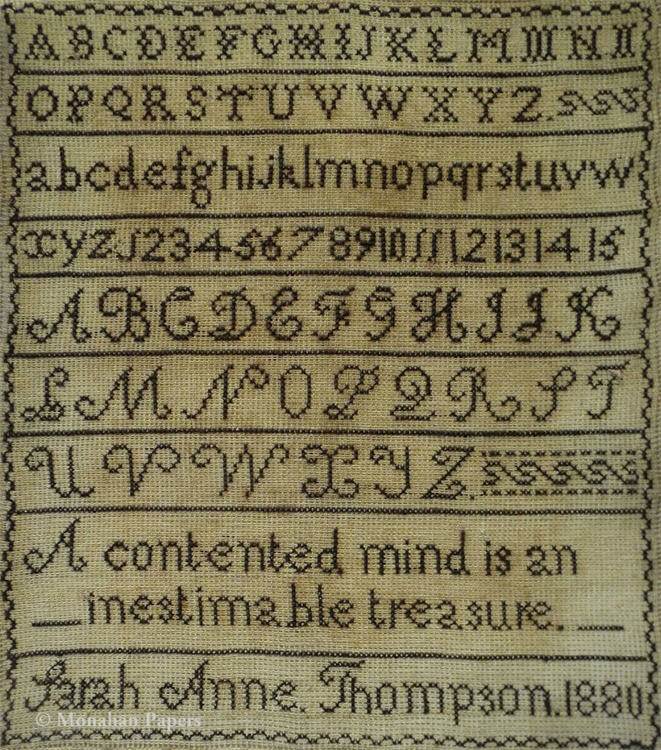 A B C D E F G H I J K L M M N N
O P Q R S T U V W X Y Z.
a b c d e f g h i j k l m n o p q r s t u v w
x y z 1 2 3 4 5 6 7 8 9 10 11 12 13 14 15
A B C D E F G H I J K
L M N O P Q R S T
U V W X Y Z.
A contented mind is an
inestimable treasure.
Sarah Anne. Thompson. 1880
© Monahan Papers